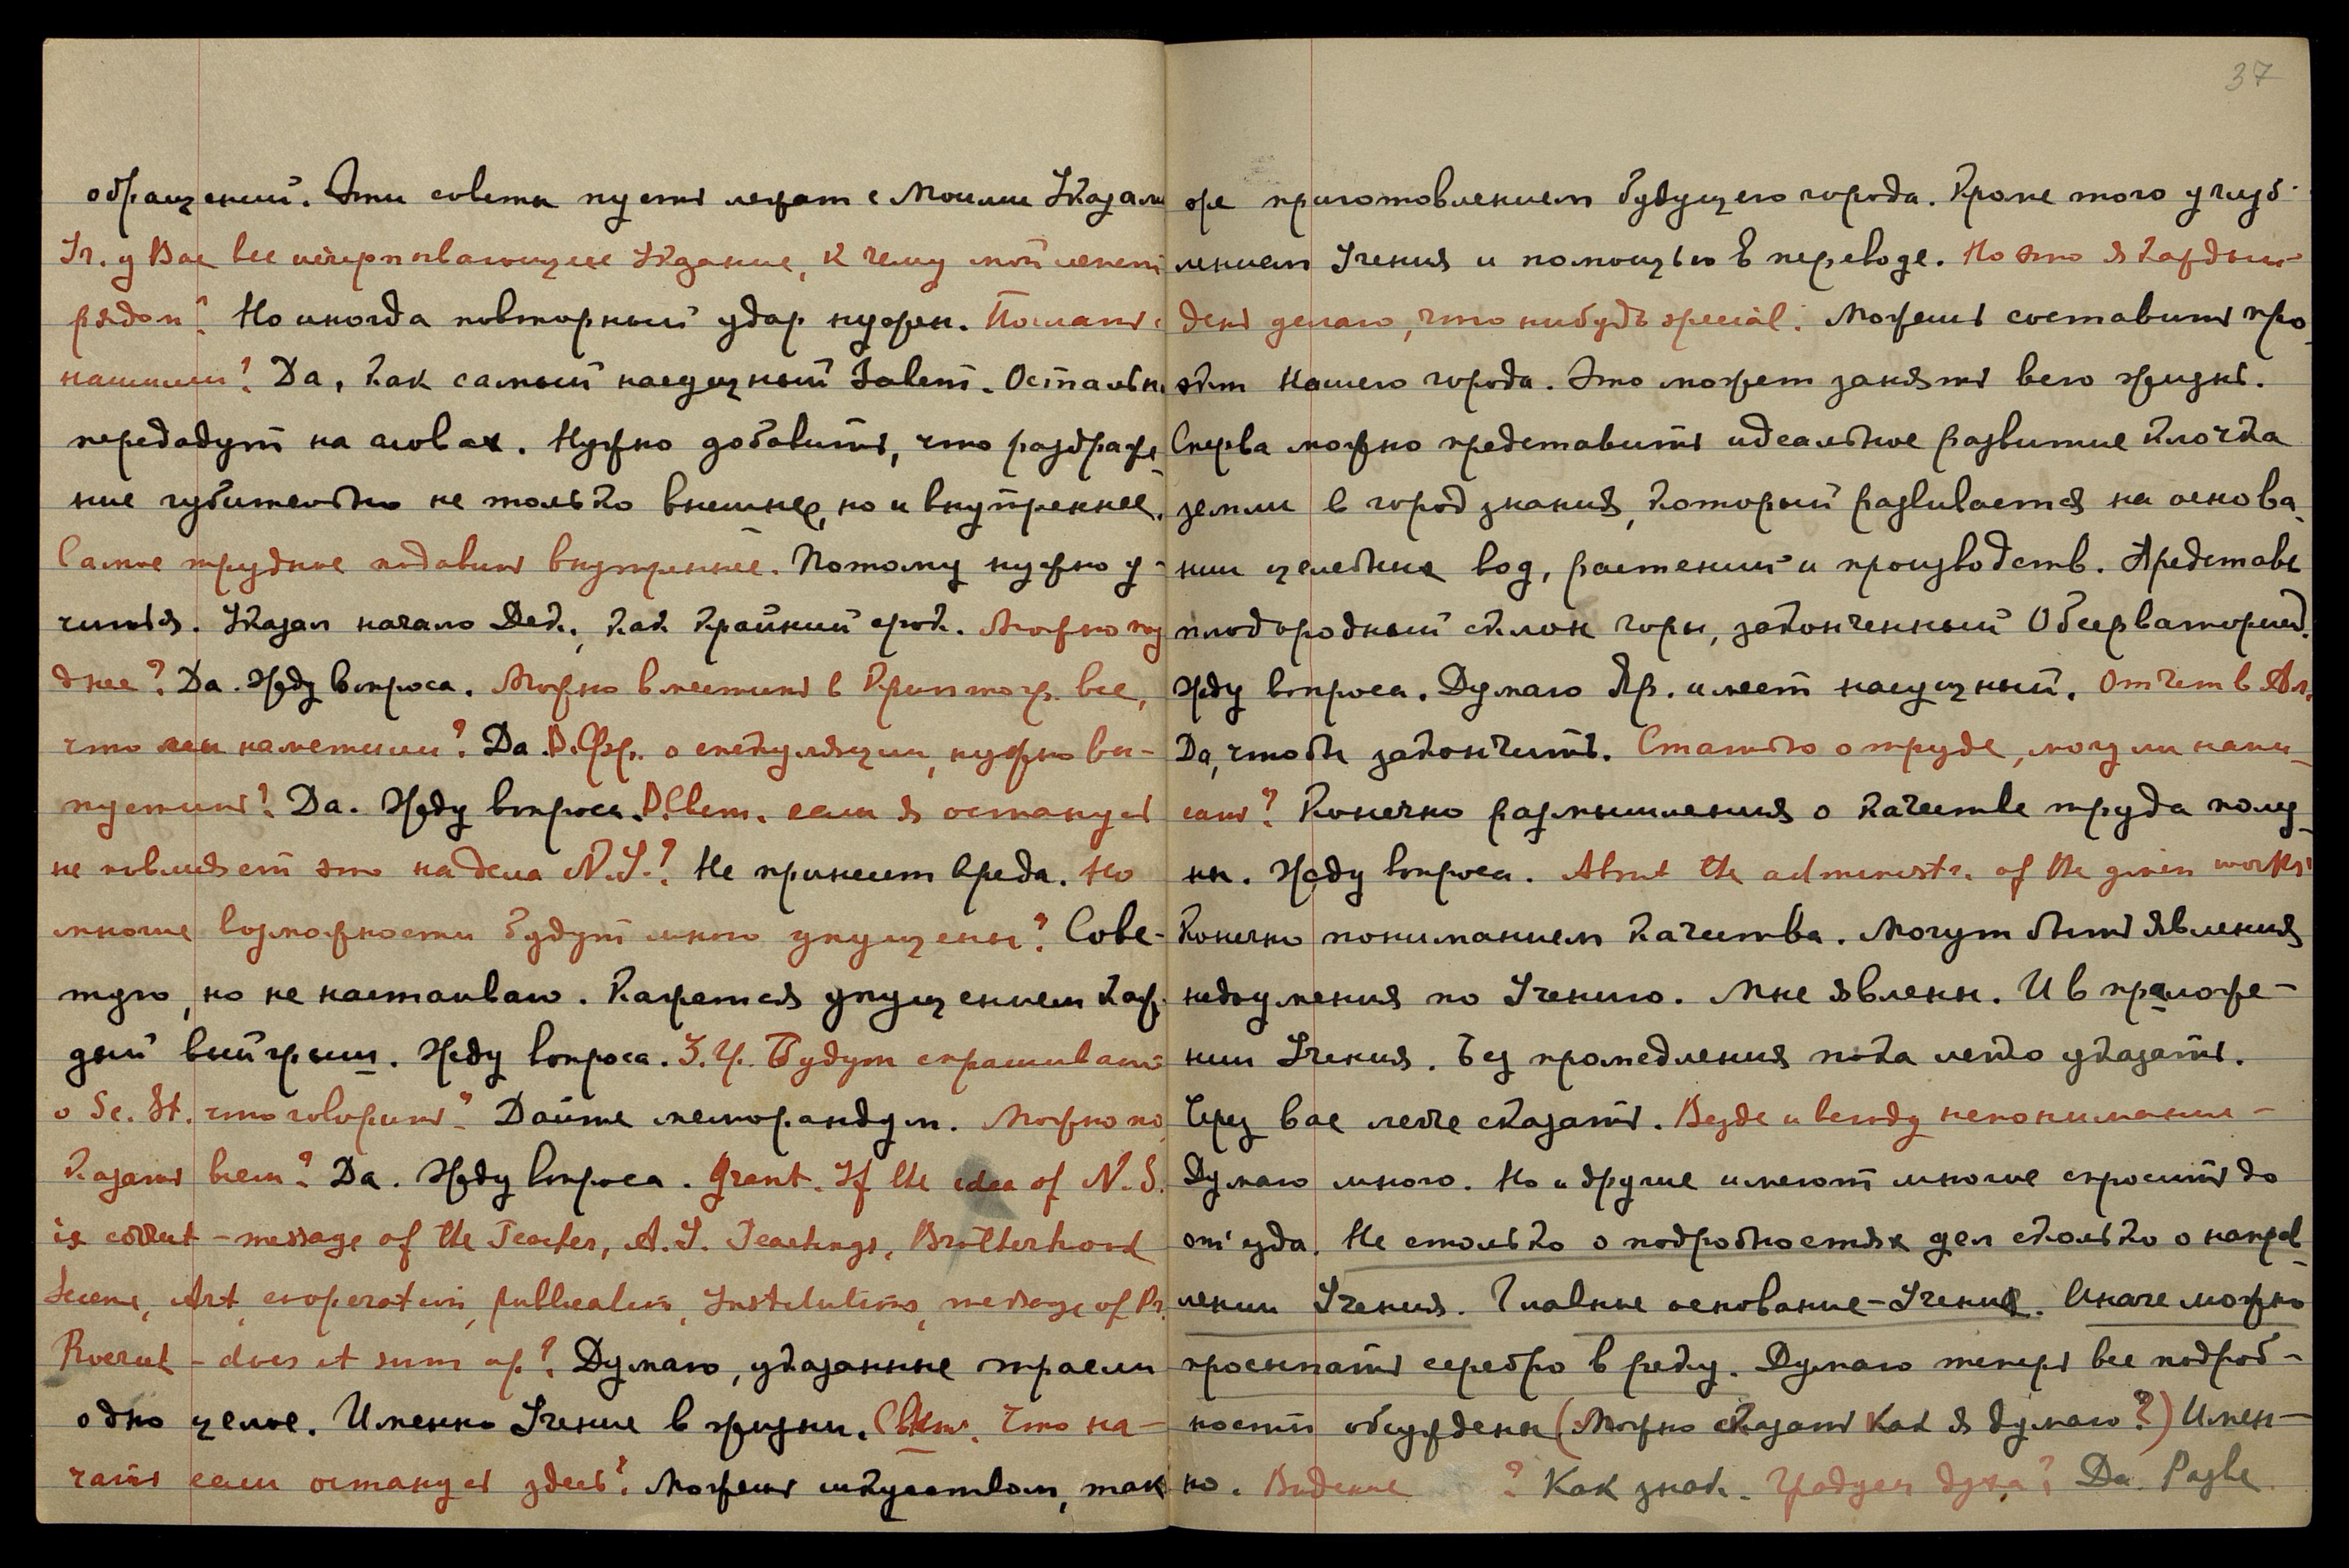 обращений. Эти советы пусть лежат с Моими Указами
Уч. у Вас все исчерпывающее Указание, к чему мой лепет
рядом? Но иногда повторный удар нужен. Послать с
нашими? Да, как самый насущный Talent. Остальн.
передадут на словах. Нужно добавить, что раздраже-
ние губительно не только внешнее, но и внутреннее.
Самое трудное подавить внутреннее. Потому нужно у-
читься. Указал начало Дек., как крайний срок. Можно поз
днее? Да. Жду вопроса. Можно вместить в Криптогр. все,
что мы наметили? Да. о спекуляции, нужно вы-
пустить? Да. Жду вопроса. Свет. если я останусь
не повлияет это на дела N.S.? Не принесет вреда. Но
многие возможности будут мною упущены? Сове-
тую, но не настаиваю. Кажется упущением каж
дый выигрыш. Жду вопроса. Будут спрашивать
о Sc. St. что говорить? Дайте меморандум. Можно по
казать всем? Да. Жду вопроса. Grant. If the idea of N.S.
is correct – message of the Teacher, A.Y. Teachings, Brotherhood
Science, Art, cooperation, publication, Institutions, message of Pr.
Roerich – does it sum up? Думаю, указанные трассы
одно целое. Именно Учение в жизни. Свет. Что на-
чать если останусь здесь? Можешь искусством, так
же приготовлением будущего города. Кроме того углуб-
лением Учения и помощью в переводе. Но это я каждый
день делаю, что нибудь special. Можешь составить про
эkт Нашего города. Это может занять всю жизнь.
Сперва можно представить идеальное развитие клочка
земли в город знания, который развивается на основа-
нии целебных вод, растений и производств. Представь
плодородный склон горы, законченный Обсерваторией.
Жду вопроса. Думаю Яр. имеет насущный. Отчет в Ам.
Да, чтобы закончить. Статью о труде, могу ли напи-
сать? Конечно размышления о качестве труда нуж
ны. Жду вопроса. About the administr. of the given works?
Конечно пониманием качества. Могут быть явления
недоумения по Учению. Мне явлены. И в приложе-
нии Учения. Без промедления пока легко указать.
Через вас легче сказать. Везде и всюду непонимание –
Думаю много. Но и другие имеют многое спросить до
отъезда. Не столько о подробностях дел сколько о направ-
лении Учения. Главные основание – Учения. Иначе можно
просыпать серебро в реку. Думаю теперь все подроб-
ности обсуждены (Можно сказать как я думаю?) Имен-
но. Видение ? Как знак. Градусы духа? Да. Разве